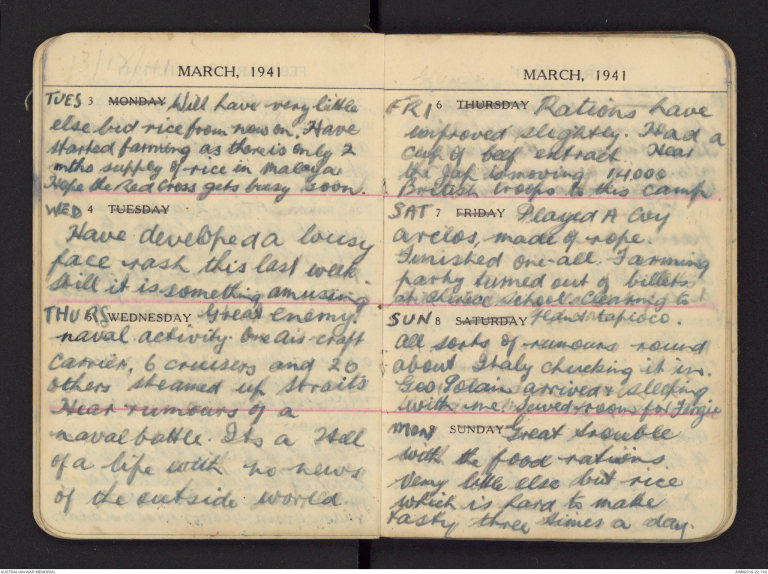 MARCH, 1941
TUES 3 MONDAY Will have very little
else bid rice from now on. Have
started farming as there is only 2
mths supply of rice in Malaya
Hope the Red Cross gets busy soon.
WED 4 TUESDAY
Have developed a lousy
face rash this last week
Still it is something amusing
THURS 5 WEDNESDAY Great enemy.
naval activity. One air craft
Carrier, 6 cruisers and 20
others steamed up straits
Hear rumours of a
naval battle. Its a Hell
of a life with no news
of the outside world
MARCH, 1941
FRI 6 THURSDAY Rations have
improved slightly. Had a
cup of beef extract. Hear
the Jap is moving 14,000
British troops to this camp
SAT 7 FRIDAY Played A Coy
made of rope.
Finished one-all. Farming
party turned out of billets
at chinese school. Clearing
SUN 8 SATURDAY tapioca.
All sorts of rumours round
about Italy chucking it in.
Geo Polain arrived & sleeping
with me. Sewed room for Fergie
MON 9 SUNDAY Great trouble
with the food rations.
Very little else but rice
which is hard to make
tasty three times a day.
AUSTRALIAN WAR MEMORIAL